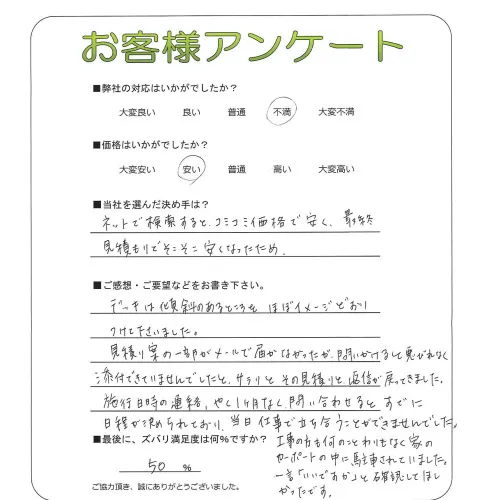 お客様アンケート
■弊社の対応はいかがでしたか？
大変良い 良い 普通 不満 大変不満
■価格はいかがでしたか？
大変安い 安い 普通 高い 大変高い
■当社を選んだ決め手は？
ネットで検索すると、コミコミ価格で安く、最終
見積もりでそこそこ安くなったため。
■ご感想・ご要望などをお書き下さい。
デッキは傾斜のあるところを ほぼイメージどおり
つけて下さいました。
見積り案の一部がメールで届かなかったが、問いかけると悪びれなく
添付できていませんでしたと、サラリと その見積りと 返信が 戻ってきました。
施行日時の連絡、やく1ヶ月なく 問い合わせると、すでに
日程が決められており、当日 仕事で立ち合うことができませんでした。
■最後に、ズバリ満足度は何％ですか？
50 %
工事の方も何のことわりもなく家の
カーポートの中に駐車されていました。
一言「いいですか」と確認してほし
かったです。
ご協力頂き、誠にありがとうございました。